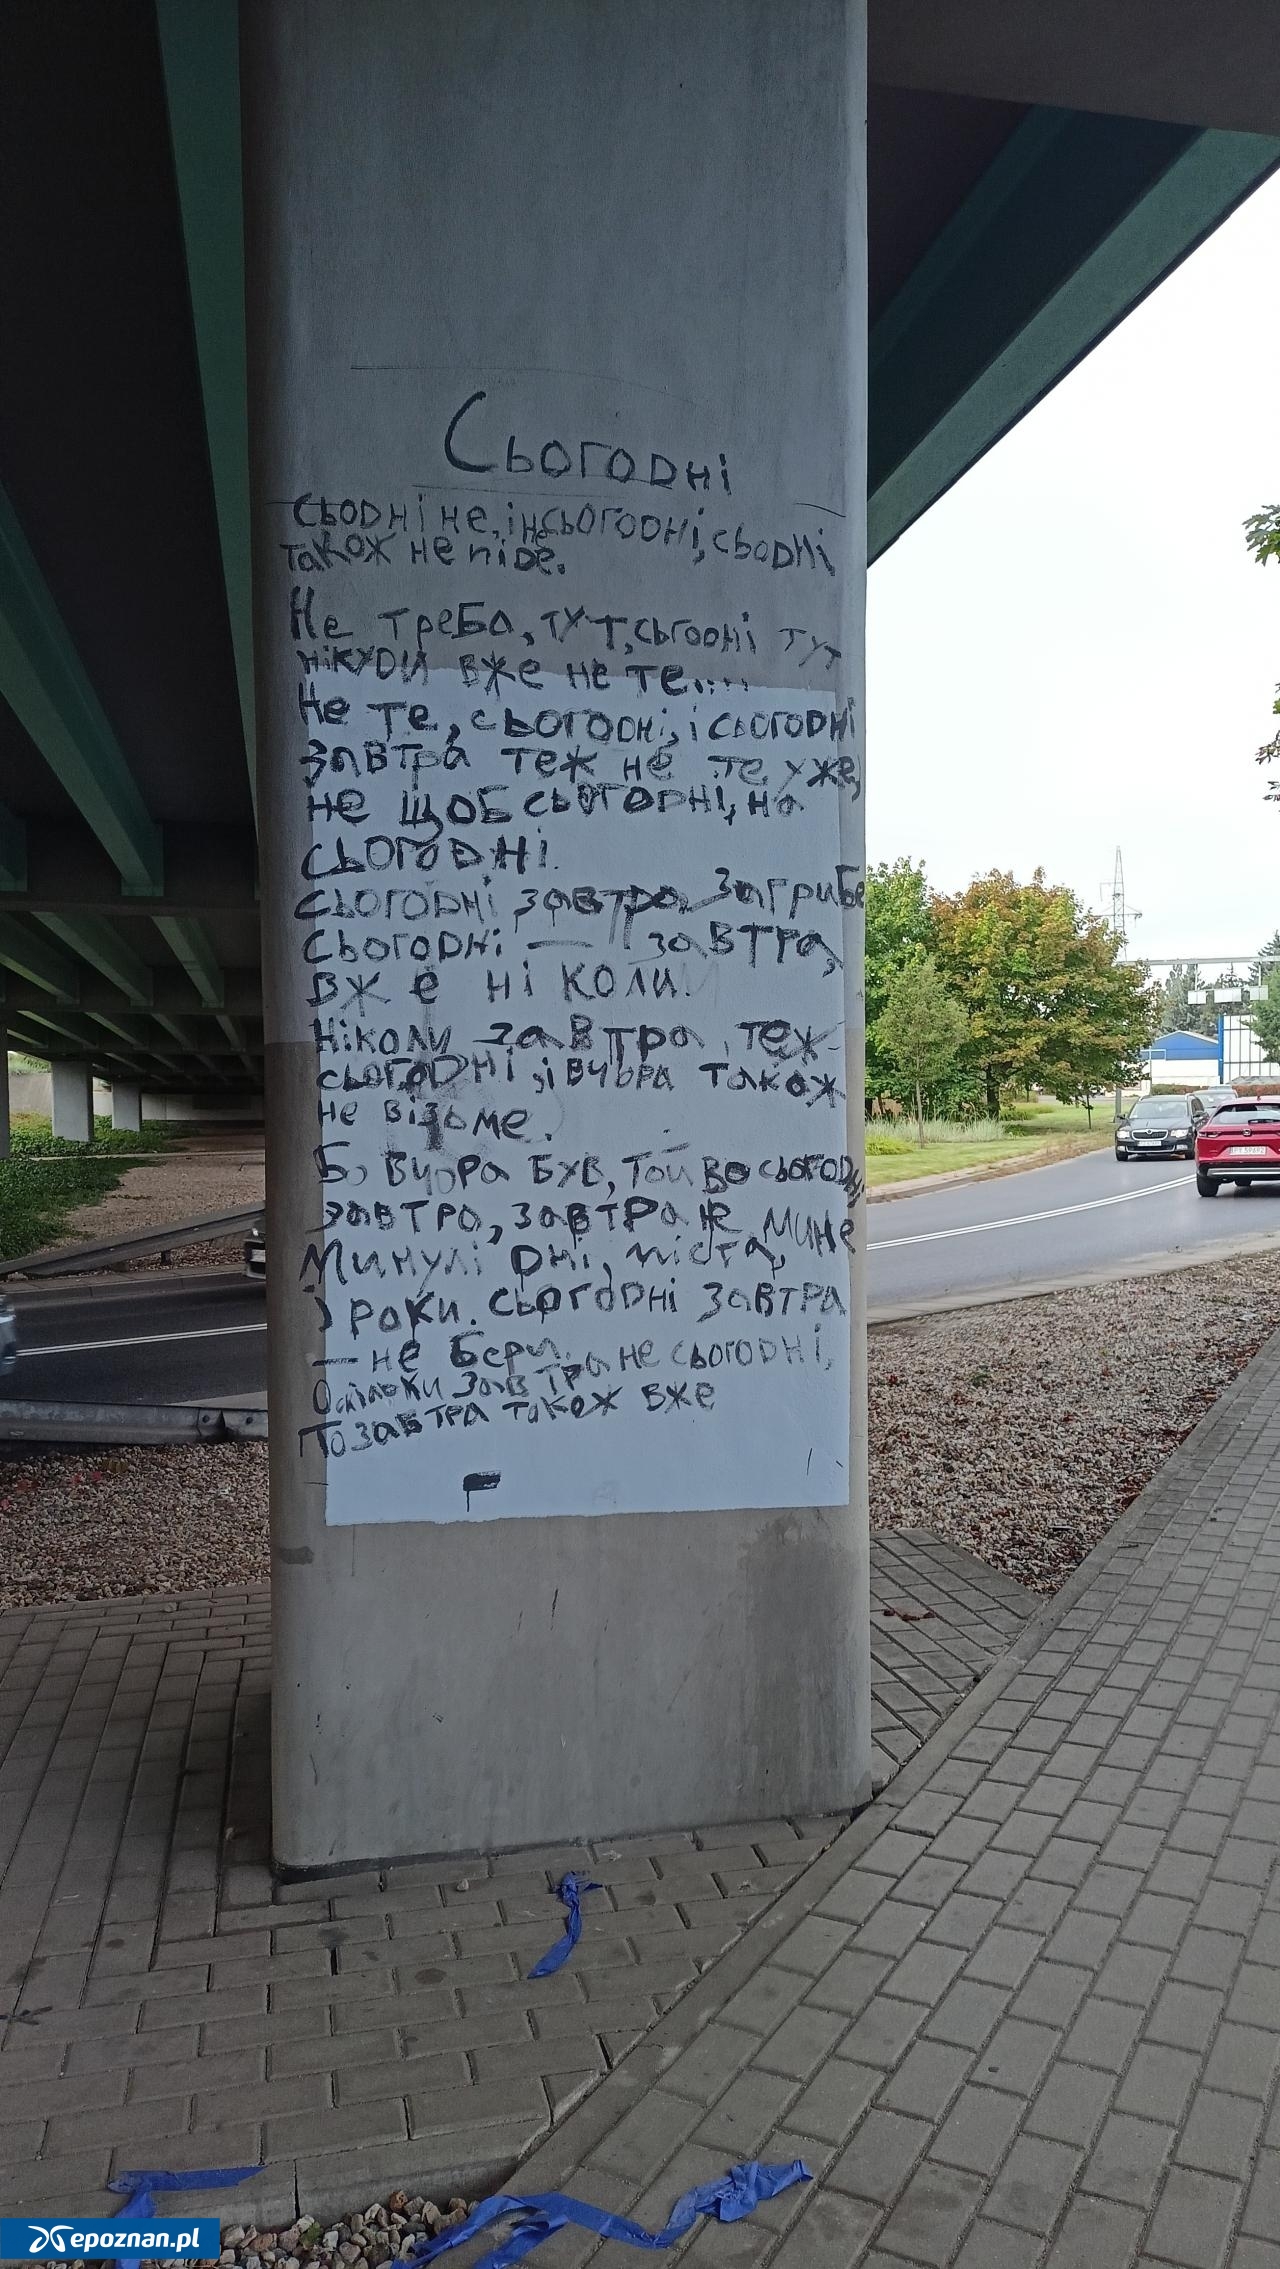 Сьогодні
сьодні не, і не сьогодні, сьодні
також не піде.
Не треба, тут, сьгодні тут
нікуди вже не те....
Не те, сьогодні, і сьогодні
завтра теж не те уже,
не щоб сьогодні, на
сьогодні.
сьогодні завтра загрибе
сьогодні — завтра,
вже ніколи.
Ніколи завтра, теж
сьогодні, і вчора також
не візьме.
Бо вчора був, той во сьогодні
завтра, завтра не мине
Минулі дні, міста,
і роки. сьогодні завтра
— не бери, не сьогодні,
Оскільки завтра
То завтра також вже
epoznan.pl